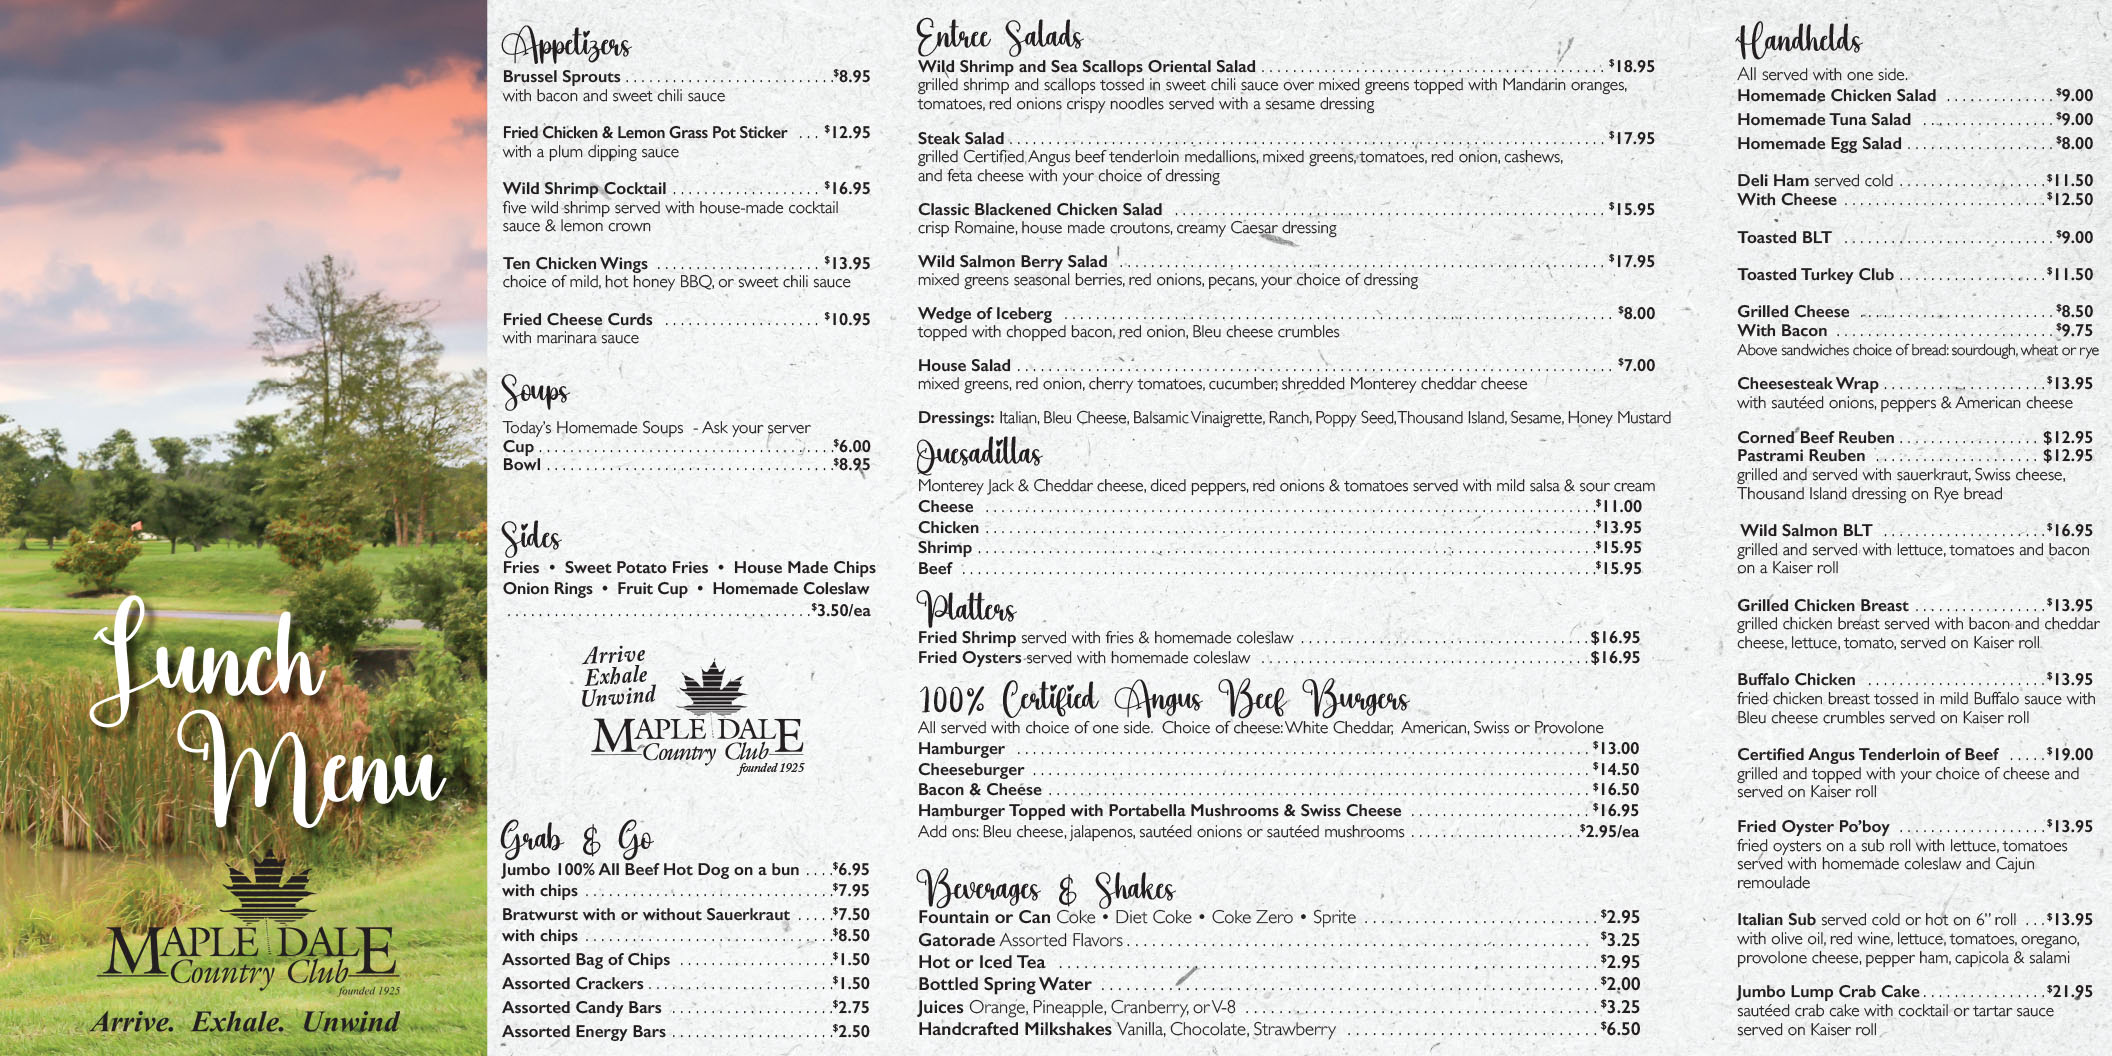 Lunch
Menu
MAPLE DALE
Country Club
founded 1925
Arrive. Exhale. Unwind
Appetizers
Brussel Sprouts . . . . . . . . . . . . . . . . . . . . . . . . . . $8.95
with bacon and sweet chili sauce
Fried Chicken & Lemon Grass Pot Sticker . . . $12.95
with a plum dipping sauce
Wild Shrimp Cocktail . . . . . . . . . . . . . . . . . . . $16.95
five wild shrimp served with house-made cocktail
sauce & lemon crown
Ten Chicken Wings . . . . . . . . . . . . . . . . . . . . . $13.95
choice of mild, hot honey BBQ, or sweet chili sauce
Fried Cheese Curds . . . . . . . . . . . . . . . . . . . . $10.95
with marinara sauce
Soups
Today's Homemade Soups - Ask your server
Cup . . . . . . . . . . . . . . . . . . . . . . . . . . . . . . . . . . . . . $6.00
Bowl . . . . . . . . . . . . . . . . . . . . . . . . . . . . . . . . . . . . $8.95
Sides
Fries • Sweet Potato Fries • House Made Chips
Onion Rings • Fruit Cup • Homemade Coleslaw
. . . . . . . . . . . . . . . . . . . . . . . . . . . . . . . . . . . . . . $3.50/ea
Arrive
Exhale
Unwind
MAPLE DALE
Country Club
founded 1925
Grab & Go
Jumbo 100% All Beef Hot Dog on a bun . . . . $6.95
with chips . . . . . . . . . . . . . . . . . . . . . . . . . . . . . . . $7.95
Bratwurst with or without Sauerkraut . . . . . $7.50
with chips . . . . . . . . . . . . . . . . . . . . . . . . . . . . . . . $8.50
Assorted Bag of Chips . . . . . . . . . . . . . . . . . . . . $1.50
Assorted Crackers . . . . . . . . . . . . . . . . . . . . . . . . $1.50
Assorted Candy Bars . . . . . . . . . . . . . . . . . . . . . $2.75
Assorted Energy Bars . . . . . . . . . . . . . . . . . . . . . $2.50
Entree Salads
Wild Shrimp and Sea Scallops Oriental Salad . . . . . . . . . . . . . . . . . . . . $18.95
grilled shrimp and scallops tossed in sweet chili sauce over mixed greens topped with Mandarin oranges,
tomatoes, red onions crispy noodles served with a sesame dressing
Steak Salad . . . . . . . . . . . . . . . . . . . . $17.95
grilled Certified Angus beef tenderloin medallions, mixed greens, tomatoes, red onion, cashews,
and feta cheese with your choice of dressing
Classic Blackened Chicken Salad . . . . . . . . . . . . . . . . . . . . $15.95
crisp Romaine, house made croutons, creamy Caesar dressing
Wild Salmon Berry Salad . . . . . . . . . . . . . . . . . . . . $17.95
mixed greens seasonal berries, red onions, pecans, your choice of dressing
Wedge of Iceberg . . . . . . . . . . . . . . . . . . . . $8.00
topped with chopped bacon, red onion, Bleu cheese crumbles
House Salad . . . . . . . . . . . . . . . . . . . . $7.00
mixed greens, red onion, cherry tomatoes, cucumber, shredded Monterey cheddar cheese
Dressings: Italian, Bleu Cheese, Balsamic Vinaigrette, Ranch, Poppy Seed, Thousand Island, Sesame, Honey Mustard
Quesadillas
Monterey Jack & Cheddar cheese, diced peppers, red onions & tomatoes served with mild salsa & sour cream
Cheese . . . . . . . . . . . . . . . . . . . . $11.00
Chicken . . . . . . . . . . . . . . . . . . . . $13.95
Shrimp . . . . . . . . . . . . . . . . . . . . $15.95
Beef . . . . . . . . . . . . . . . . . . . . $15.95
Platters
Fried Shrimp served with fries & homemade coleslaw . . . . . . . . . . . . . . . . . . . . $16.95
Fried Oysters served with homemade coleslaw . . . . . . . . . . . . . . . . . . . . $16.95
100% Certified Angus Beef Burgers
All served with choice of one side. Choice of cheese: White Cheddar, American, Swiss or Provolone
Hamburger . . . . . . . . . . . . . . . . . . . . $13.00
Cheeseburger . . . . . . . . . . . . . . . . . . . . $14.50
Bacon & Cheese . . . . . . . . . . . . . . . . . . . . $16.50
Hamburger Topped with Portabella Mushrooms & Swiss Cheese . . . . . . . . . . . . . . . . . . . . $16.95
Add ons: Bleu cheese, jalapenos, sautéed onions or sautéed mushrooms . . . . . . . . . . . . . . . . . . . . $2.95/ea
Beverages & Shakes
Fountain or Can Coke • Diet Coke • Coke Zero • Sprite . . . . . . . . . . . . . . . . . . . . $2.95
Gatorade Assorted Flavors . . . . . . . . . . . . . . . . . . . . $3.25
Hot or Iced Tea . . . . . . . . . . . . . . . . . . . . $2.95
Bottled Spring Water . . . . . . . . . . . . . . . . . . . . $2.00
Juices Orange, Pineapple, Cranberry, or V-8 . . . . . . . . . . . . . . . . . . . . $3.25
Handcrafted Milkshakes Vanilla, Chocolate, Strawberry . . . . . . . . . . . . . . . . . . . . $6.50
Handhelds
All served with one side.
Homemade Chicken Salad . . . . . . . . . . . . . . $9.00
Homemade Tuna Salad . . . . . . . . . . . . . . . . . $9.00
Homemade Egg Salad . . . . . . . . . . . . . . . . . . . $8.00
Deli Ham served cold . . . . . . . . . . . . . . . . . . . $11.50
With Cheese . . . . . . . . . . . . . . . . . . . . . . . . . . $12.50
Toasted BLT . . . . . . . . . . . . . . . . . . . . . . . . . . . $9.00
Toasted Turkey Club . . . . . . . . . . . . . . . . . . . $11.50
Grilled Cheese . . . . . . . . . . . . . . . . . . . . . . . . . $8.50
With Bacon . . . . . . . . . . . . . . . . . . . . . . . . . . . . $9.75
Above sandwiches choice of bread: sourdough, wheat or rye
Cheesesteak Wrap . . . . . . . . . . . . . . . . . . . . . $13.95
with sautéed onions, peppers & American cheese
Corned Beef Reuben . . . . . . . . . . . . . . . . . . . $12.95
Pastrami Reuben . . . . . . . . . . . . . . . . . . . . . . $12.95
grilled and served with sauerkraut, Swiss cheese,
Thousand Island dressing on Rye bread
Wild Salmon BLT . . . . . . . . . . . . . . . . . . . . . . $16.95
grilled and served with lettuce, tomatoes and bacon
on a Kaiser roll
Grilled Chicken Breast . . . . . . . . . . . . . . . . . $13.95
grilled chicken breast served with bacon and cheddar
cheese, lettuce, tomato, served on Kaiser roll
Buffalo Chicken . . . . . . . . . . . . . . . . . . . . . . . $13.95
fried chicken breast tossed in mild Buffalo sauce with
Bleu cheese crumbles served on Kaiser roll
Certified Angus Tenderloin of Beef . . . . . $19.00
grilled and topped with your choice of cheese and
served on Kaiser roll
Fried Oyster Po'boy . . . . . . . . . . . . . . . . . . . $13.95
fried oysters on a sub roll with lettuce, tomatoes
served with homemade coleslaw and Cajun
remoulade
Italian Sub served cold or hot on 6" roll . . . $13.95
with olive oil, red wine, lettuce, tomatoes, oregano,
provolone cheese, pepper ham, capicola & salami
Jumbo Lump Crab Cake . . . . . . . . . . . . . . . . $21.95
sautéed crab cake with cocktail or tartar sauce
served on Kaiser roll